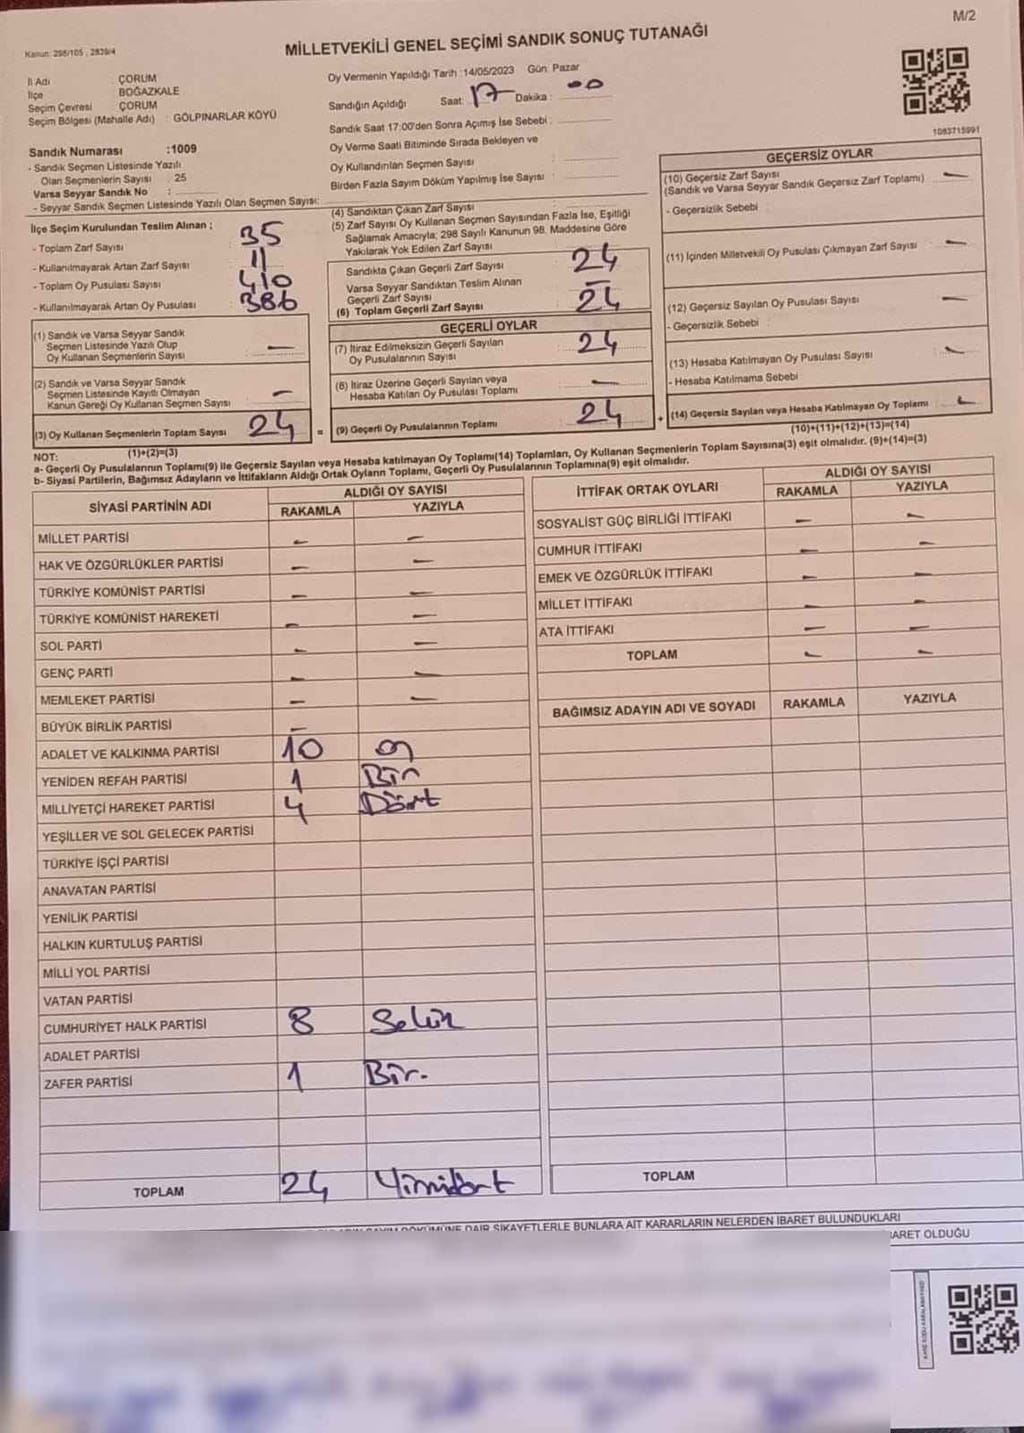 M/2
Kanun: 298/105 , 2839/4
MİLLETVEKİLİ GENEL SEÇİMİ SANDIK SONUÇ TUTANAĞI
İl Adı : ÇORUM
İlçe BOĞAZKALE
Seçim Çevresi ÇORUM
Seçim Bölgesi (Mahalle Adı) : GÖLPINARLAR KÖYÜ
Sandık Numarası :1009
- Sandık Seçmen Listesinde Yazılı
Olan Seçmenlerin Sayısı : 25
Varsa Seyyar Sandık No :
- Seyyar Sandık Seçmen Listesinde Yazılı Olan Seçmen Sayısı:
Oy Vermenin Yapıldığı Tarih :14/05/2023 Gün: Pazar
Sandığın Açıldığı Saat: 17 Dakika : 00
Sandık Saat 17:00'den Sonra Açımış İse Sebebi :
Oy Verme Saati Bitiminde Sırada Bekleyen ve
Oy Kullandırılan Seçmen Sayısı :
Birden Fazla Sayım Döküm Yapılmış İse Sayısı :
1083715991
İlçe Seçim Kurulundan Teslim Alınan ;
- Toplam Zarf Sayısı : 35
- Kullanılmayarak Artan Zarf Sayısı : 11
- Toplam Oy Pusulası Sayısı : 410
- Kullanılmayarak Artan Oy Pusulası : 386
(1) Sandık ve Varsa Seyyar Sandık
Seçmen Listesinde Yazılı Olup
Oy Kullanan Seçmenlerin Sayısı : —
(2) Sandık ve Varsa Seyyar Sandık
Seçmen Listesinde Kayıtlı Olmayan
Kanun Gereği Oy Kullanan Seçmen Sayısı : —
(3) Oy Kullanan Seçmenlerin Toplam Sayısı : 24 =
(1)+(2)=(3)
(4) Sandıktan Çıkan Zarf Sayısı :
(5) Zarf Sayısı Oy Kullanan Seçmen Sayısından Fazla İse, Eşitliği
Sağlamak Amacıyla; 298 Sayılı Kanunun 98. Maddesine Göre
Yakılarak Yok Edilen Zarf Sayısı :
Sandıkta Çıkan Geçerli Zarf Sayısı : 24
Varsa Seyyar Sandıktan Teslim Alınan
Geçerli Zarf Sayısı : —
(6) Toplam Geçerli Zarf Sayısı : 24
GEÇERLİ OYLAR
(7) İtiraz Edilmeksizin Geçerli Sayılan
Oy Pusulalarının Sayısı : 24
(8) İtiraz Üzerine Geçerli Sayılan veya
Hesaba Katılan Oy Pusulası Toplamı : —
(9) Geçerli Oy Pusulalarının Toplamı : 24 +
GEÇERSİZ OYLAR
(10) Geçersiz Zarf Sayısı : —
(Sandık ve Varsa Seyyar Sandık Geçersiz Zarf Toplamı)
- Geçersizlik Sebebi :
(11) İçinden Milletvekili Oy Pusulası Çıkmayan Zarf Sayısı : —
(12) Geçersiz Sayılan Oy Pusulası Sayısı : —
- Geçersizlik Sebebi :
(13) Hesaba Katılmayan Oy Pusulası Sayısı : —
- Hesaba Katılmama Sebebi
(14) Geçersiz Sayılan veya Hesaba Katılmayan Oy Toplamı : —
(10)+(11)+(12)+(13)=(14)
NOT:
a- Geçerli Oy Pusulalarının Toplamı(9) ile Geçersiz Sayılan veya Hesaba katılmayan Oy Toplamı(14) Toplamları, Oy Kullanan Seçmenlerin Toplam Sayısına(3) eşit olmalıdır. (9)+(14)=(3)
b- Siyasi Partilerin, Bağımsız Adayların ve İttifakların Aldığı Ortak Oyların Toplamı, Geçerli Oy Pusulalarının Toplamına(9) eşit olmalıdır.
SİYASİ PARTİNİN ADI ALDIĞI OY SAYISI
RAKAMLA YAZIYLA
MİLLET PARTİSİ — —
HAK VE ÖZGÜRLÜKLER PARTİSİ — —
TÜRKİYE KOMÜNİST PARTİSİ — —
TÜRKİYE KOMÜNİST HAREKETİ — —
SOL PARTİ — —
GENÇ PARTİ — —
MEMLEKET PARTİSİ — —
BÜYÜK BİRLİK PARTİSİ —
ADALET VE KALKINMA PARTİSİ 10 on
YENİDEN REFAH PARTİSİ 1 Bir
MİLLİYETÇİ HAREKET PARTİSİ 4 Dört
YEŞİLLER VE SOL GELECEK PARTİSİ
TÜRKİYE İŞÇİ PARTİSİ
ANAVATAN PARTİSİ
YENİLİK PARTİSİ
HALKIN KURTULUŞ PARTİSİ
MİLLİ YOL PARTİSİ
VATAN PARTİSİ
CUMHURİYET HALK PARTİSİ 8 Sekiz
ADALET PARTİSİ
ZAFER PARTİSİ 1 Bir.
TOPLAM 24 Yirmidört
İTTİFAK ORTAK OYLARI ALDIĞI OY SAYISI
RAKAMLA YAZIYLA
SOSYALİST GÜÇ BİRLİĞİ İTTİFAKI — —
CUMHUR İTTİFAKI — —
EMEK VE ÖZGÜRLÜK İTTİFAKI — —
MİLLET İTTİFAKI — —
ATA İTTİFAKI — —
TOPLAM — —
BAĞIMSIZ ADAYIN ADI VE SOYADI RAKAMLA YAZIYLA
TOPLAM
DÖKÜMÜNE DAİR ŞİKAYETLERLE BUNLARA AİT KARARLARIN NELERDEN İBARET BULUNDUKLARI
OLDUĞU